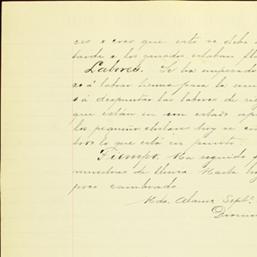 ces a creer que esto se debe a
tarde a los ganados estaban fl
Labores. Se ha empezado
a labrar tierra para la
a despuntar las labores de
que están en un estado
los pequeños chilares hoy se
tros lo que está en
Tiempo. Ha seguido
muestras de lluvia. Hasta hoy
poco cambiado.
Hda. Alamo Sept.